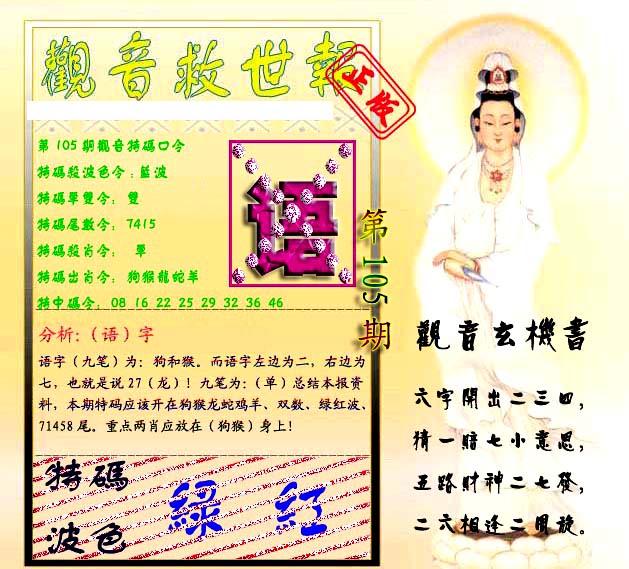 觀音救世報
正版
第105期觀音特碼口令
特碼殺波色令:藍波
特碼單雙令: 雙
特碼尾數令: 7415
特碼殺肖令: 單
特碼出肖令: 狗猴龍蛇羊
特中碼令: 08 16 22 25 29 32 36 46
语
第105期
分析:(语)字
语字(九笔)为:狗和猴。而语字左边为二,右边为
七,也就是说27(龙)!九笔为:(单)总结本报资
料,本期特码应该开在狗猴龙蛇鸡羊、双数、绿红波、
71458尾。重点两肖应放在(狗猴)身上!
特碼
波色
綠 紅
觀音玄機書
六字開出二三四,
猜一賠七小意思,
五路財神二七發,
二六相逢二周旋。